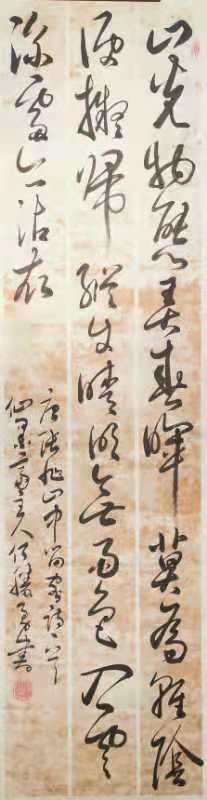 山光物態弄春暉莫為輕陰
便擬歸縱使晴明無雨色入雲
深處亦沾衣
唐張旭山中留客詩一首
主人 書